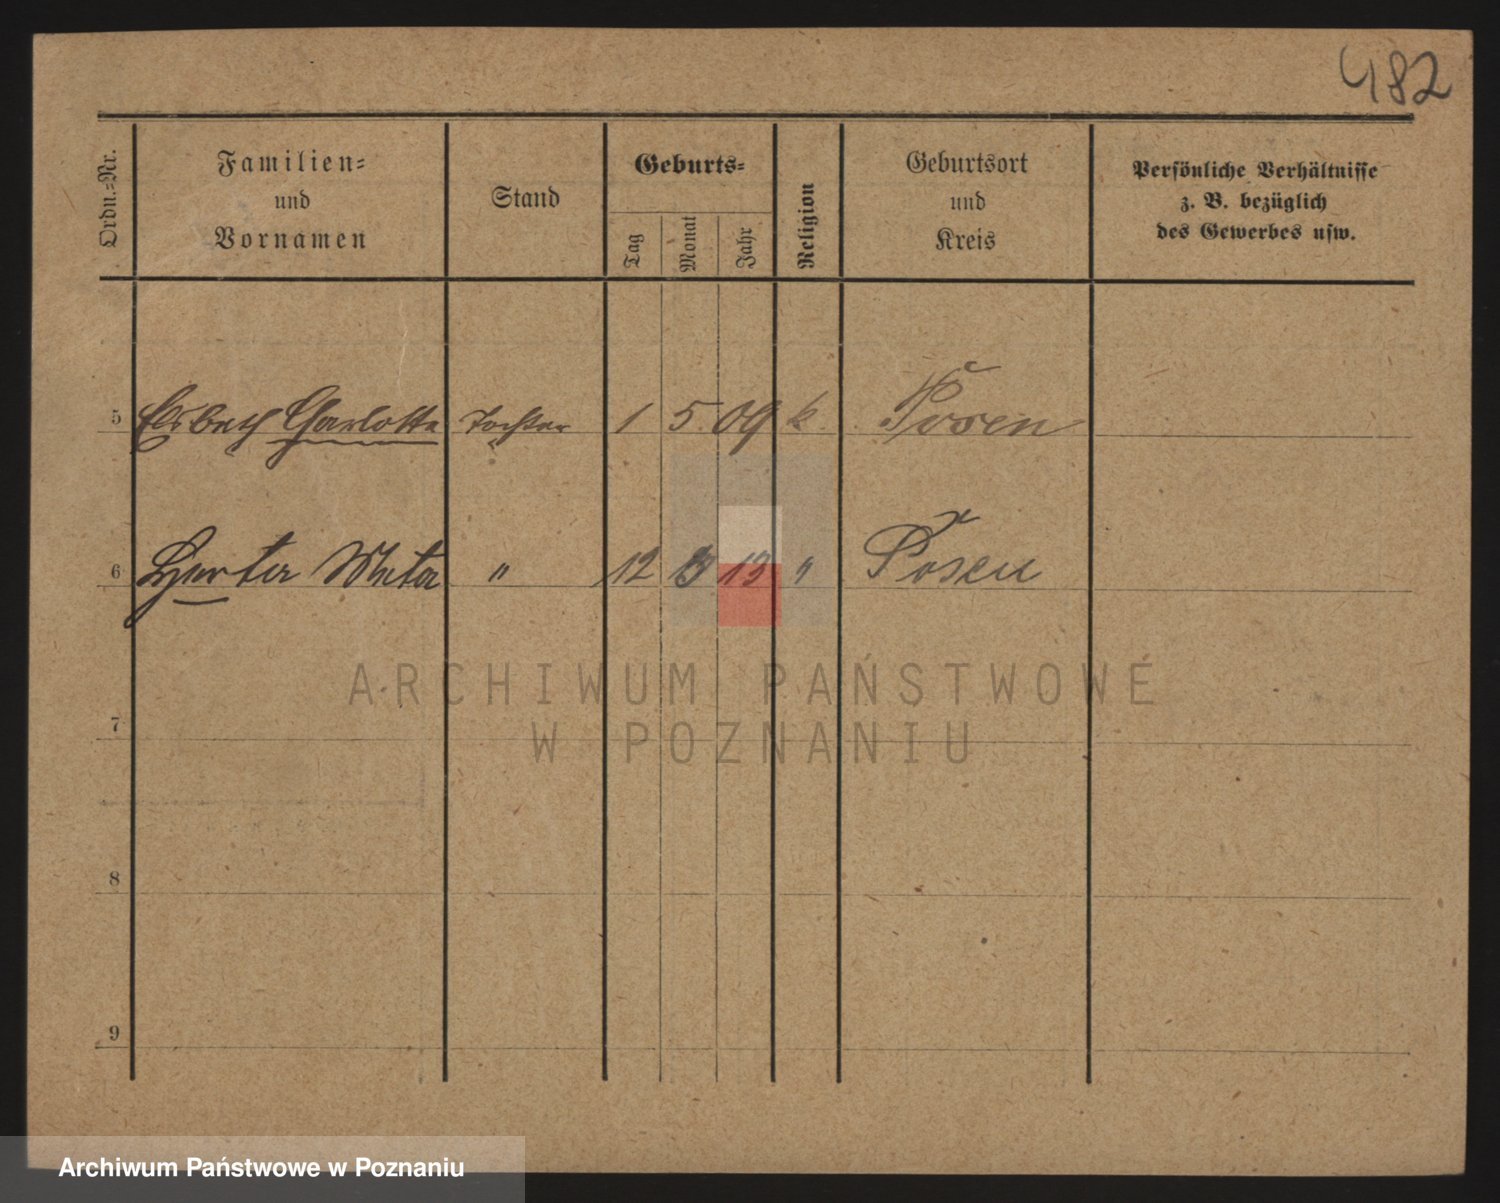 482
Ordn.-Nr.
Familien-
und
Vornamen
Stand
Geburts-
Tag
Monat
Jahr
Religion
Geburtsort
und
Kreis
Persönliche Verhältnisse
z. B. bezüglich
des Gewerbes usw.
5 Elsbeth Charlotte Tochter 1 5 09 k. Posen
6 Herta Meta " 12 13 " Posen
ARCHIWUM PAŃSTWOWE
W POZNANIU
7
8
9
Archiwum Państwowe w Poznaniu